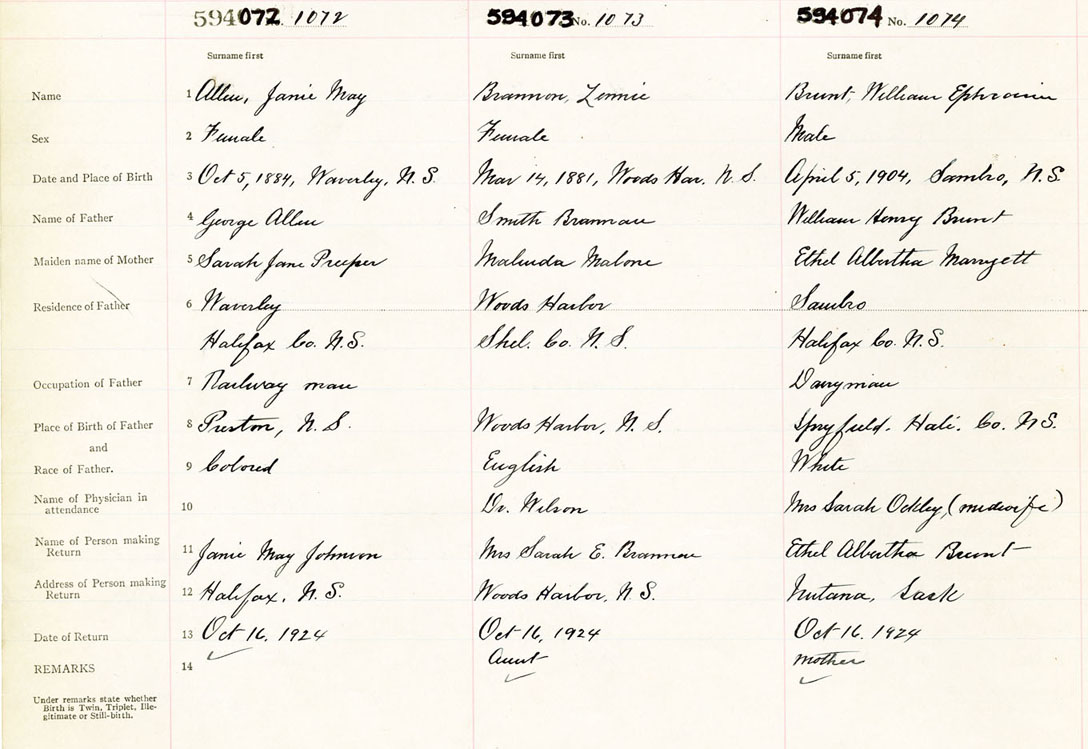 594072. 1072 594073 No. 1073 594074 No. 1074
Surname first Surname first Surname first
Name 1 Allen, Janie May Brannon, Zennie Brunt, William Ephraim
Sex 2 Female Female Male
Date and Place of Birth 3 Oct 5, 1884, Waverley, N.S. Mar 14, 1881, Woods Har. N.S. April 5, 1904, Sambro, N.S.
Name of Father 4 George Allen Smith Brannan William Henry Brunt
Maiden name of Mother 5 Sarah Jane Preeper Malinda Malone Ethel Albertha Marryett
Residence of Father 6 Waverley Woods Harbor Sambro
Halifax Co. N.S. Shel. Co. N.S. Halifax Co. N.S.
Occupation of Father 7 Railway man Dairyman
Place of Birth of Father 8 Preston, N.S. Woods Harbor, N.S. Spryfield. Hali. Co. N.S.
and
Race of Father. 9 Colored English White
Name of Physician in
attendance 10 Dr. Wilson Mrs Sarah Ockley, (midwife)
Name of Person making
Return 11 Janie May Johnson Mrs Sarah E. Brannan Ethel Albertha Brunt
Address of Person making
Return 12 Halifax, N.S. Woods Harbor, N.S. Nutana, Sask
Date of Return 13 Oct 16, 1924 Oct 16, 1924 Oct 16. 1924
REMARKS 14 Aunt mother
Under remarks state whether
Birth is Twin, Triplet, Ille-
gitimate or Still-birth.